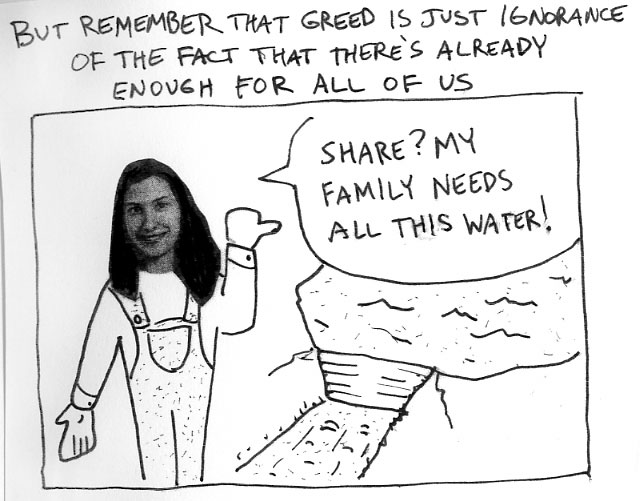 BUT REMEMBER THAT GREED IS JUST IGNORANCE
OF THE FACT THAT THERE'S ALREADY
ENOUGH FOR ALL OF US
SHARE? MY
FAMILY NEEDS
ALL THIS WATER!